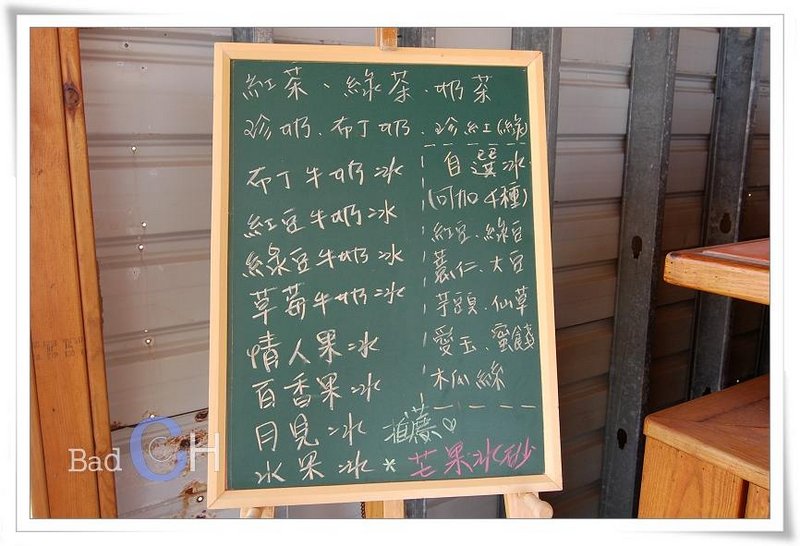 紅茶、綠茶、奶茶
珍奶、布丁奶、珍紅(綠)
布丁牛奶冰
紅豆牛奶冰
綠豆牛奶冰
草莓牛奶冰
情人果冰
百香果冰
月見冰
水果冰
自選冰
(可加4種)
紅豆、綠豆
薏仁、大豆
芋頭、仙草
愛玉、蜜餞
木瓜絲
推薦♡
*芒果冰砂
Bad CH